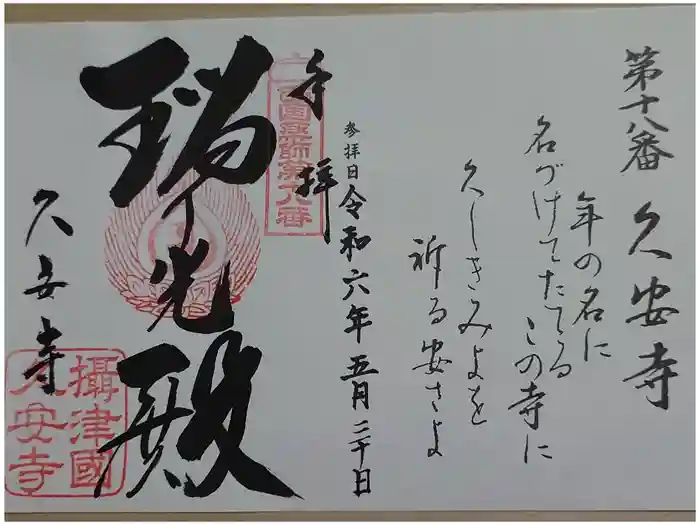 第十八番 久安寺
年の名に
名づけてたてる この寺に
久しきみよを
祈る安さよ
参拝日 令和六年五月二十日
奉拝
西国薬師第十八番
瑞光殿
久安寺
攝津國
久安寺